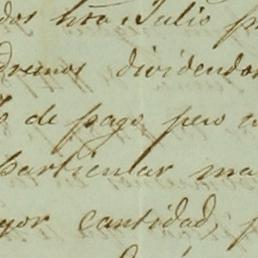 dos hta Julio p
dremos dividendo
de pago pero n
particular ma
yor cantidad, p